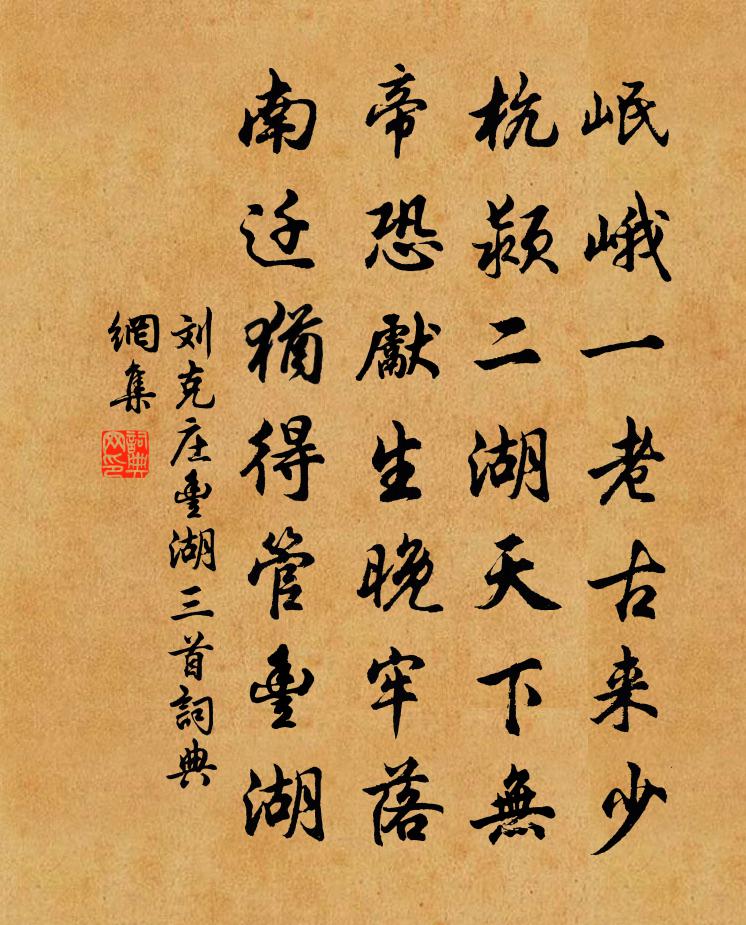 岷峨一老古来少
杭潁二湖天下無
帝恐獻生晚牢落
南迁猶得管豐湖
刘克庄豐湖三首詞典
網集
詞典
网印